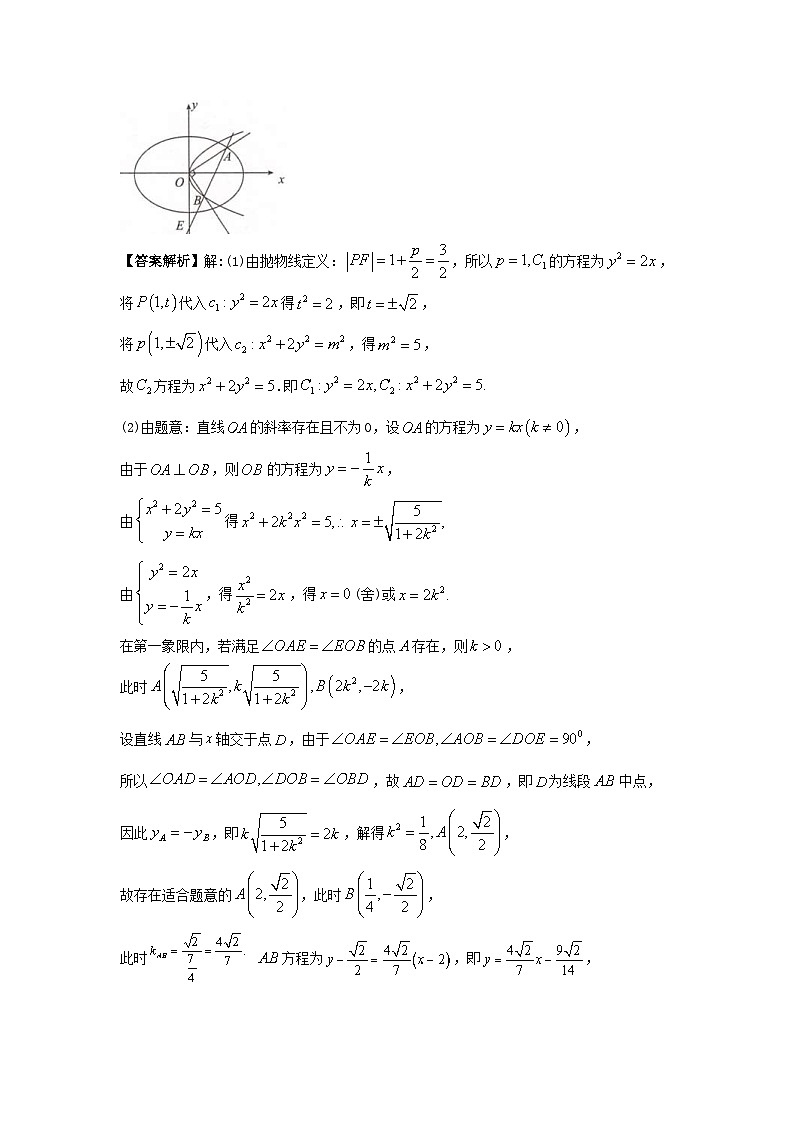 y
A
O
x
B
E
【答案解析】解:(1)由抛物线定义：|PF|=1+p/2=3/2，所以p=1,C₁的方程为y²=2x，
将P(1,t)代入c₁:y²=2x得t²=2，即t=±√2，
将p(1,±√2)代入c₂:x²+2y²=m²，得m²=5，
故C₂方程为x²+2y²=5.即C₁:y²=2x,C₂:x²+2y²=5.
(2)由题意：直线OA的斜率存在且不为0，设OA的方程为y=kx(k≠0)，
由于OA⊥OB，则OB的方程为y=-1/k x，
由{x²+2y²=5, y=kx 得x²+2k²x²=5,∴x=±√(5/(1+2k²)),
由{y²=2x, y=-1/k x，得x²/k²=2x，得x=0(舍)或x=2k².
在第一象限内，若满足∠OAE=∠EOB的点A存在，则k>0，
此时A(√(5/(1+2k²)),k√(5/(1+2k²))),B(2k²,-2k)，
设直线AB与x轴交于点D，由于∠OAE=∠EOB,∠AOB=∠DOE=90⁰，
所以∠OAD=∠AOD,∠DOB=∠OBD，故AD=OD=BD，即D为线段AB中点，
因此y_A=-y_B，即k√(5/(1+2k²))=2k，解得k²=1/8,A(2,√2/2)，
故存在适合题意的A(2,√2/2)，此时B(1/4,-√2/2)，
此时k_AB=√2/(7/4)=4√2/7. AB方程为y-√2/2=4√2/7(x-2)，即y=4√2/7 x-9√2/14，